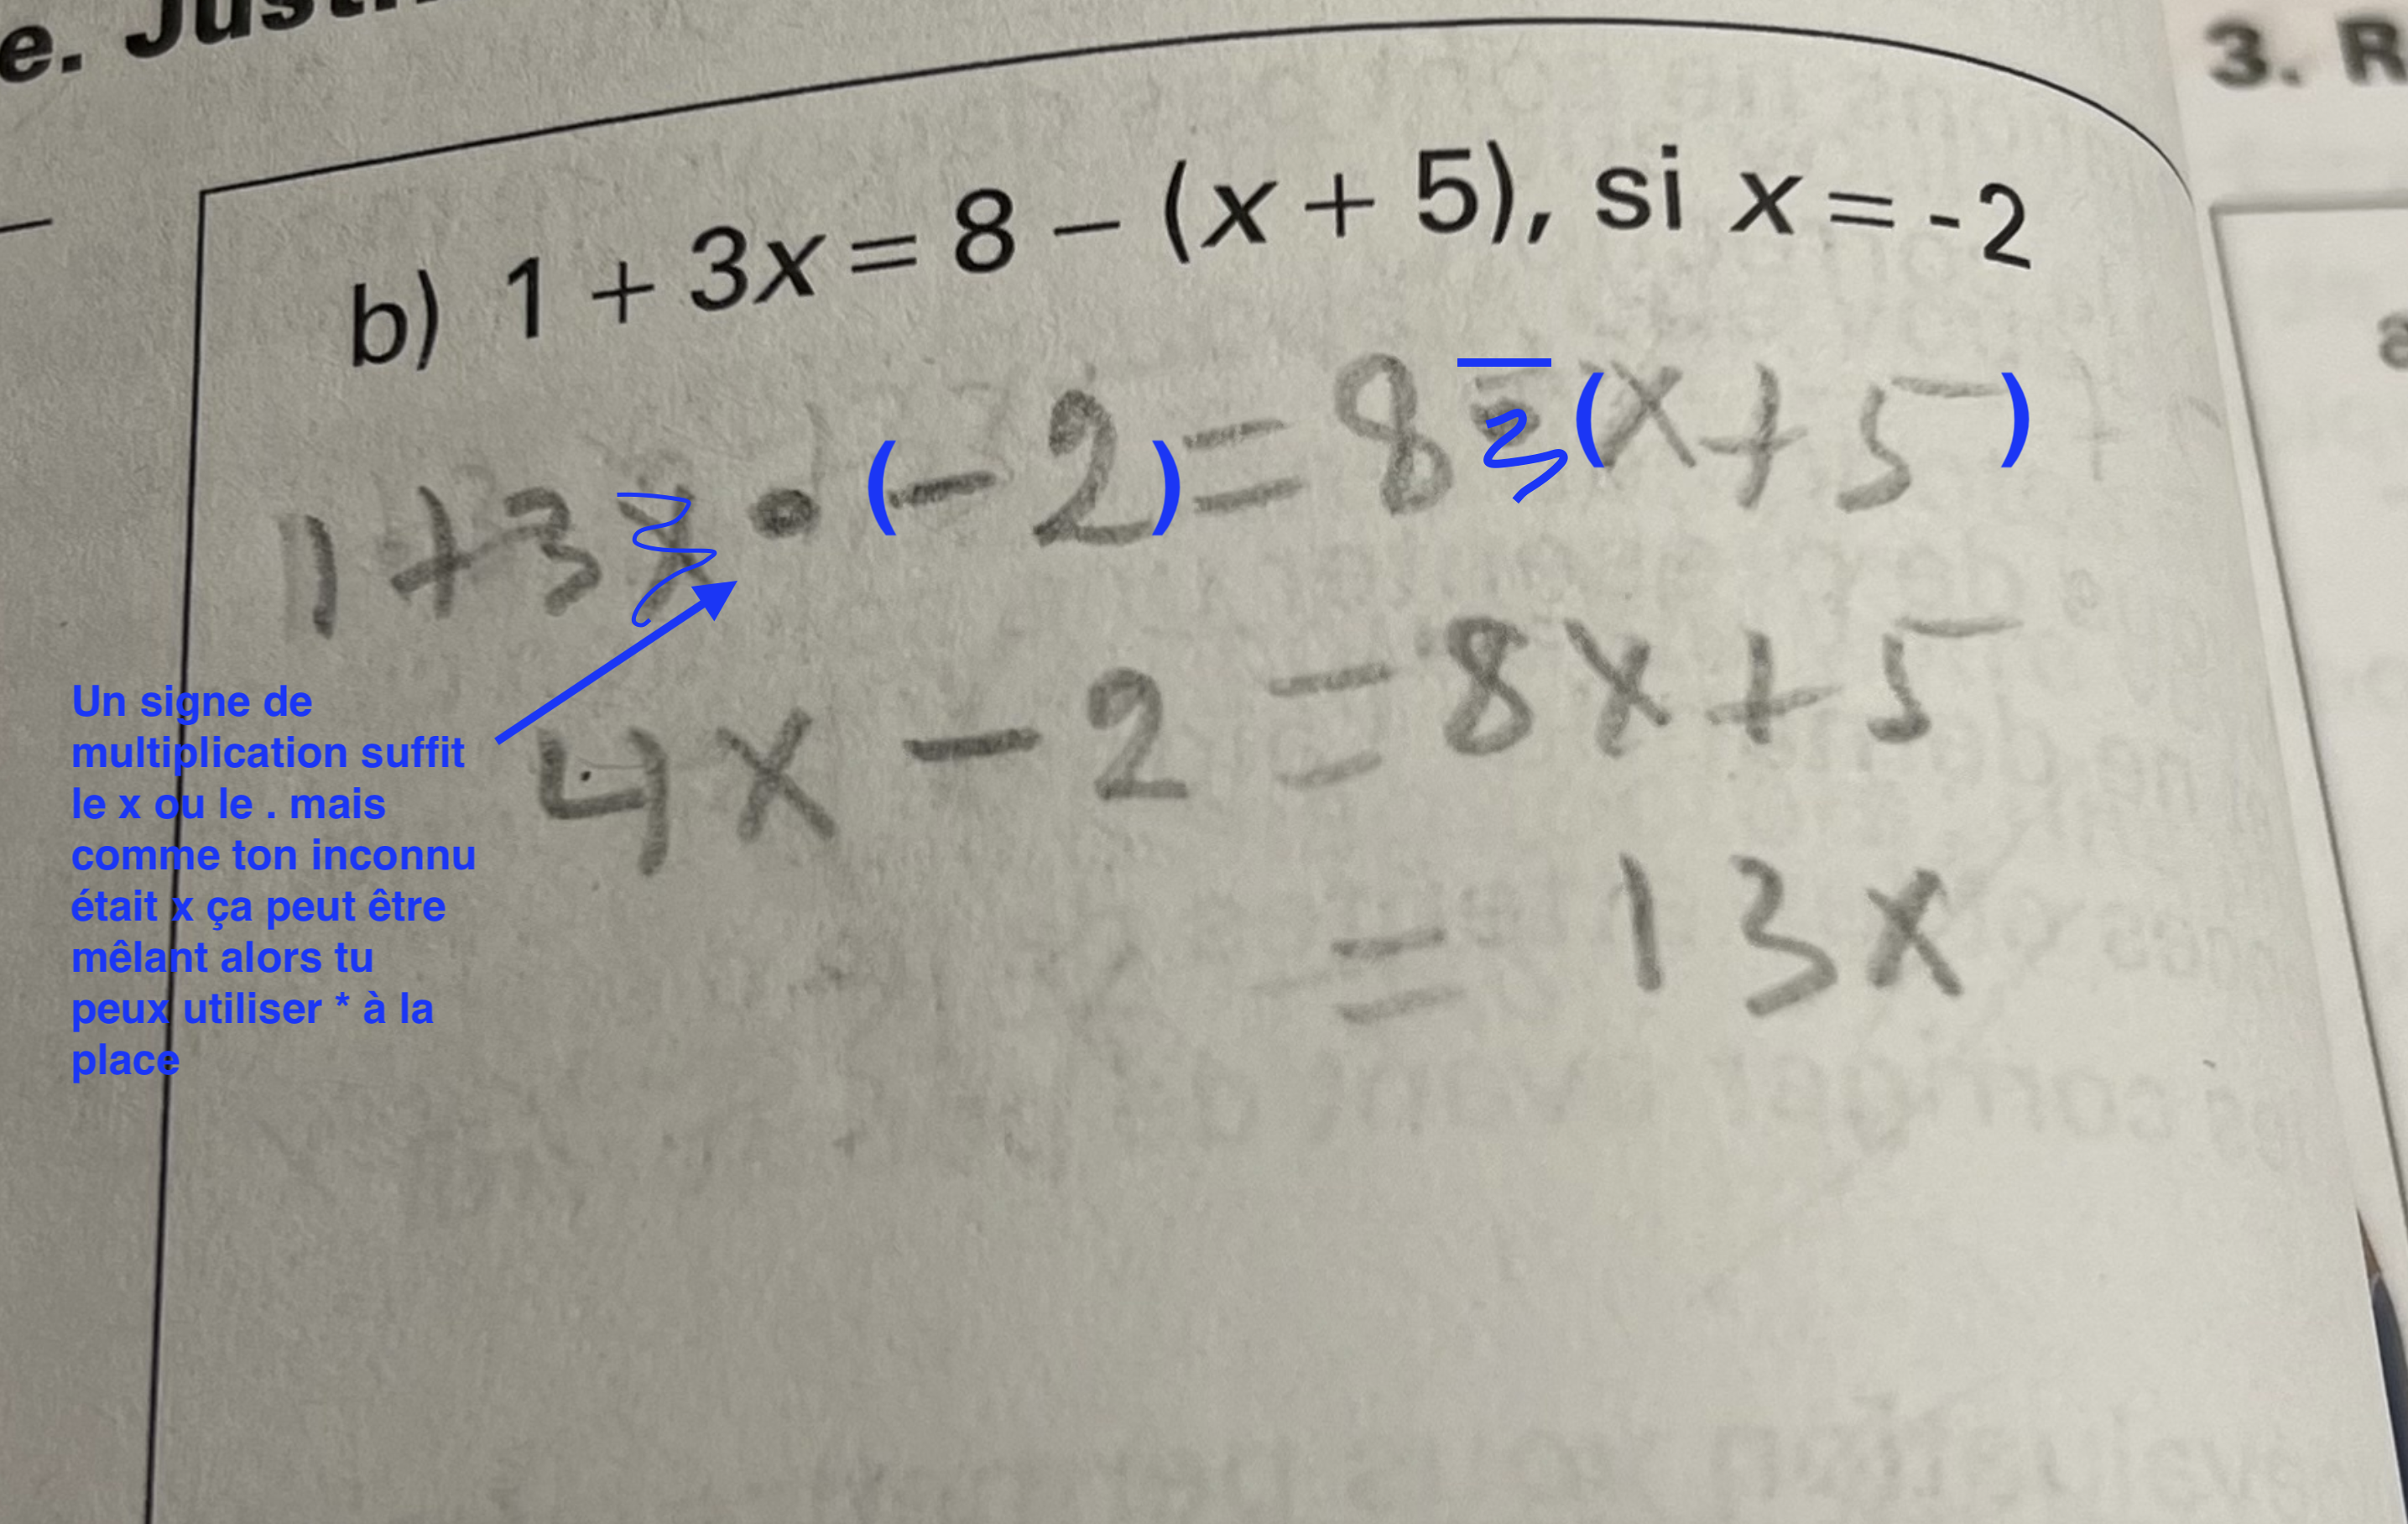 e. Just
3. R
b) 1 + 3x = 8 − (x + 5), si x = -2
1+3x • (−2) = 8 − (x+5)
4x − 2 = 8x+5
= 13x
Un signe de
multiplication suffit
le x ou le . mais
comme ton inconnu
était x ça peut être
mêlant alors tu
peux utiliser * à la
place